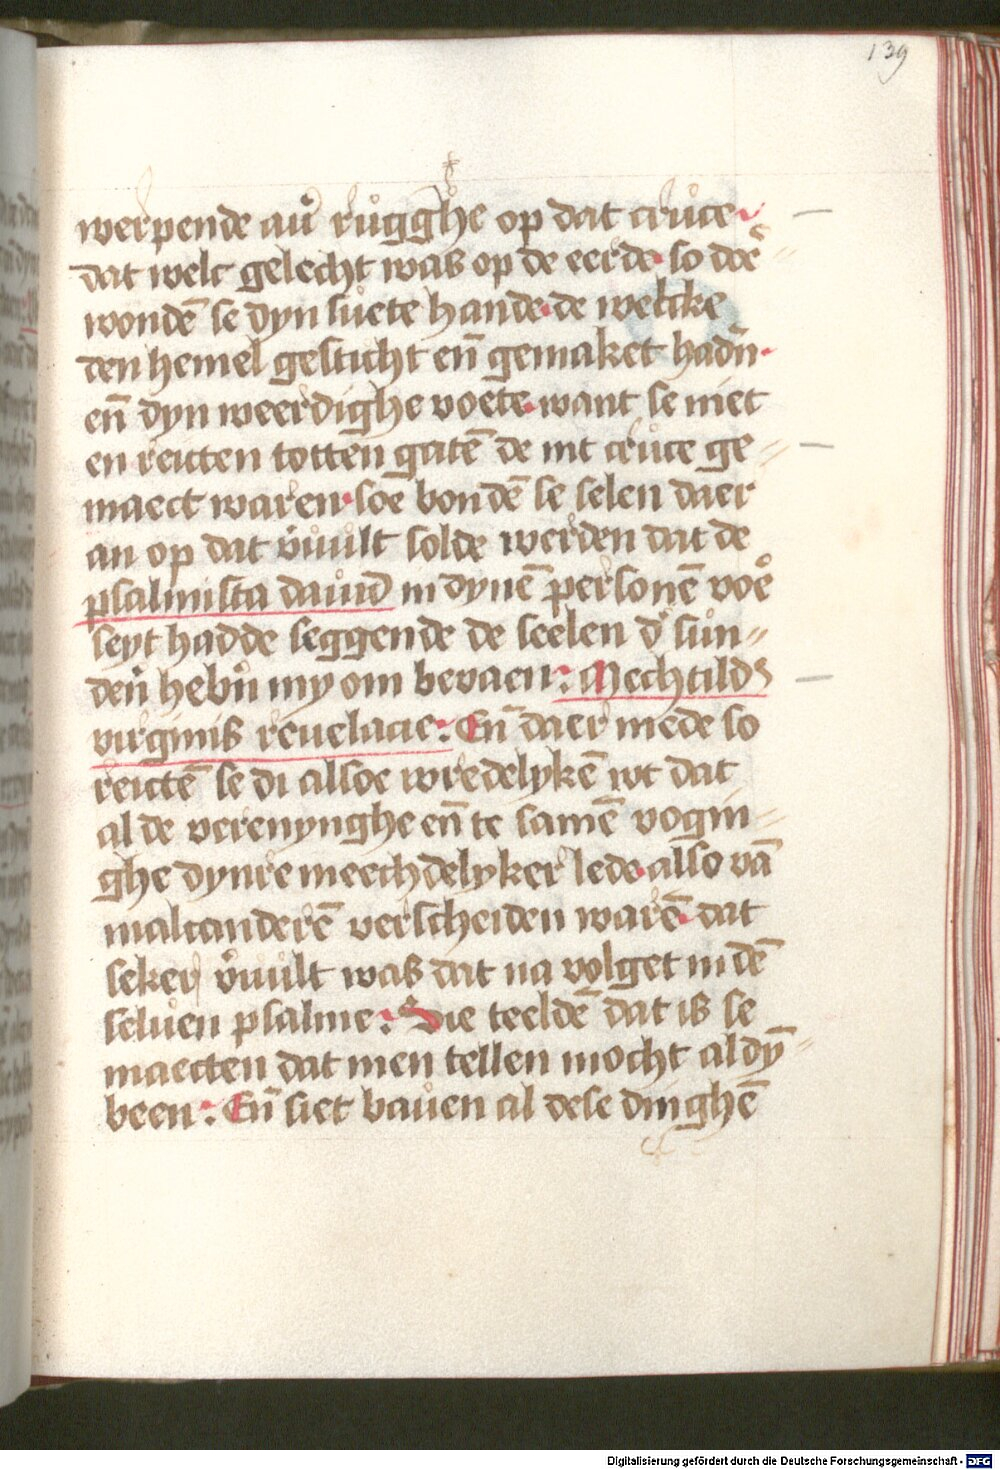 139
werpende au᷑ růgghe op dat crůce
dat welc gelecht was op de eerde· so doē
wondē se dyn sůete hande· de welcke
den hemel gesticht eñ gemaket hadn̄·
eñ dyn weerdighe voete· want se niet
en reicten totten gatē de int crůce ge⸗
maect waren· soe bondē se selen daer
an op dat v᷑uult solde werden dat de
psalmista dauid in dynē personē voe᷑
seyt hadde seggende de seelen d᷑ sůn⸗
den̄ hebn̄ my om bevaen: Mechtild᷒
virginis reuelacie: Eñ daer mede so
reictē se di alsoe wredelykē wt dat
al de verenynghe eñ te samē vogin⸗
ghe dynre meechdelyker lede· also vā
malcanderē verscheiden warē· dat
seker v᷑uult was dat na volget in dē
seluen psalme: Die teeldē dat is se
maecten dat men tellen mocht al dȳ⸗
been: Eñ siet bauen al dese dinghē
Digitalisierung gefördert durch die Deutsche Forschungsgemeinschaft - DFG